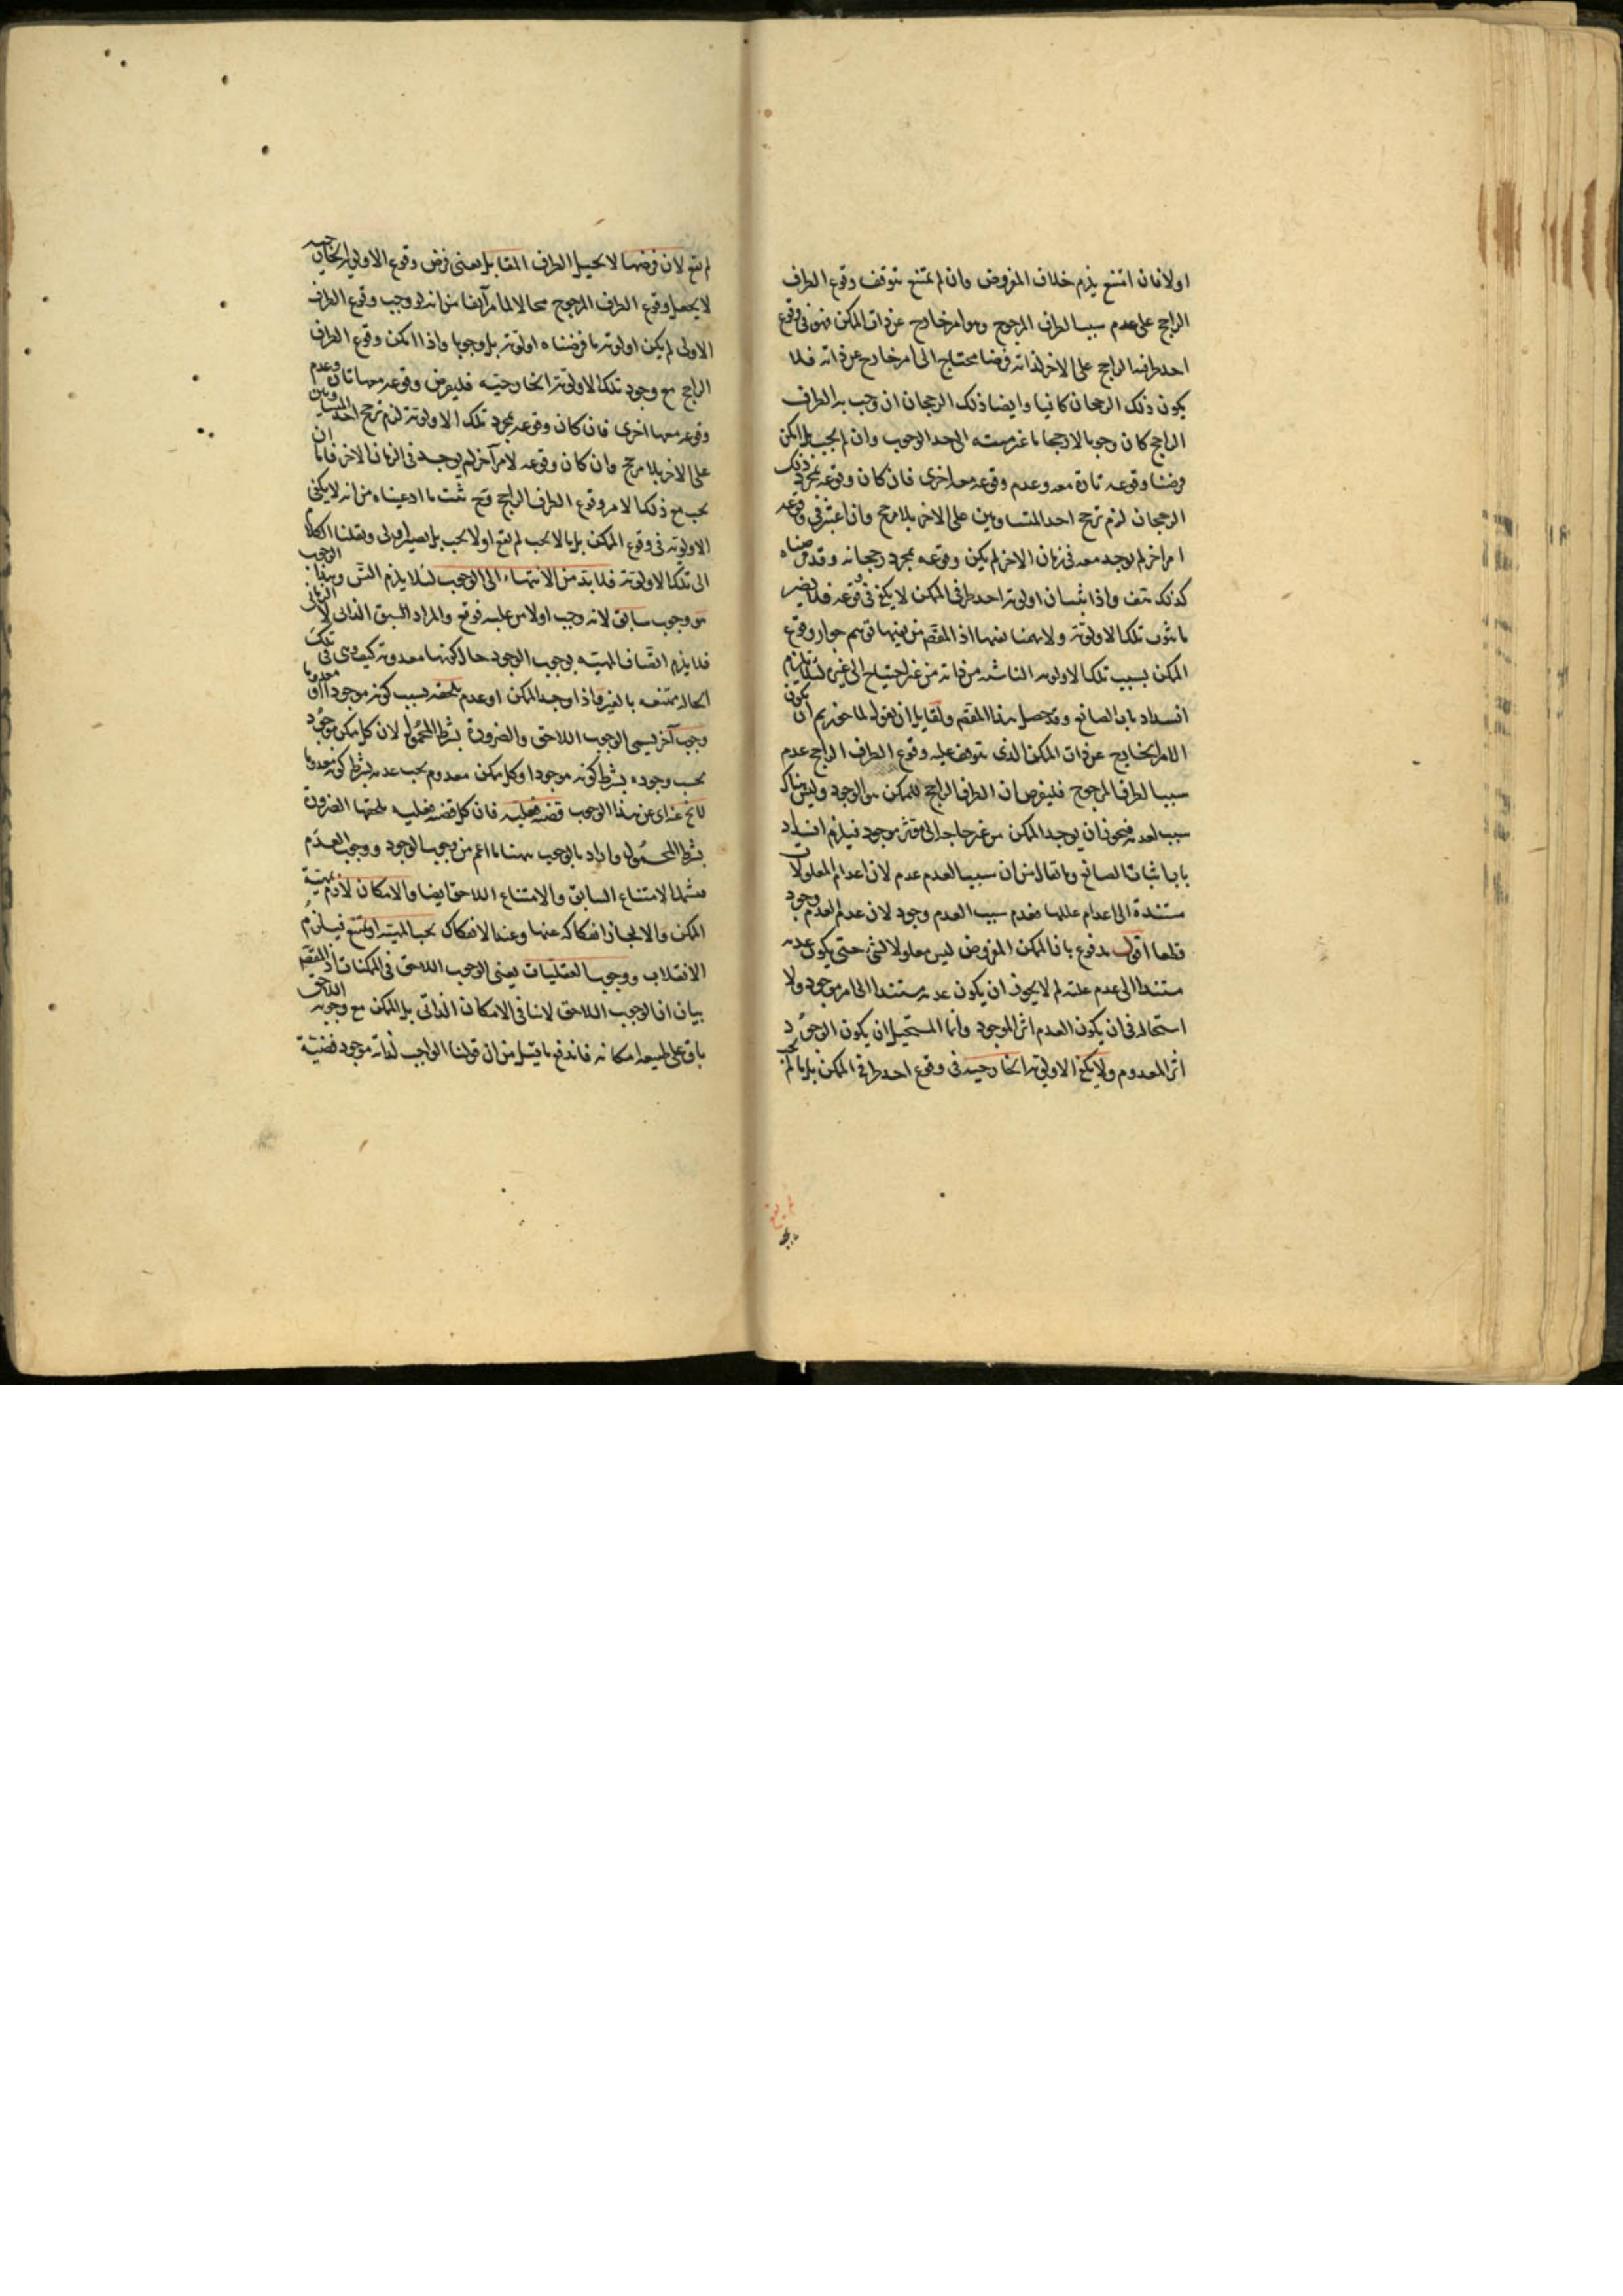 اولا فان امتنع يلزم خلاف المفروض وان لم يمتنع يتوقف وقوع الطرف
الراجح على عدم سبب الطرف المرجوح وهو امر خارج عن ذات الممكن فهو في وقوع
احد طرفيه الراجح على الاخر لذاته فرضا محتاج الى امر خارج عن ذاته فلا
يكون ذلك الرجحان كافيا وايضا ذلك الرجحان ان وجب به الطرف
الراجح كان وجوبا لا رجحانا غير منته الى حد الوجوب وان لم يجب بل امكن
فرضنا وقوعه تارة معه وعدم وقوعه معه اخرى فان كان وقوعه بمجرد ذلك
الرجحان لزم ترجح احد المتساويين على الاخر بلا مرجح وان اعتبر في وقوعه
امر اخر لم يوجد معه في زمان الاخر لم يكن وقوعه بمجرد رجحانه وقد فرضناه
كذلك هف واذا ثبت ان اولوية احد طرفي الممكن لا يكفي في وقوعه فلا يضر
ثبوت تلك الاولوية ولا يهمنا نفيها اذ المقصود من نفيها توهم جواز وقوع
الممكن بسبب تلك الاولوية الناشئة من ذاته من غير احتياج الى غيره لئلا يلزم
انسداد باب الصانع وقد حصل هذا المقصود ولقائل ان يقول لما جوزتم ان يكون
الامر الخارج عن ذات الممكن الذي يتوقف عليه وقوع الطرف الراجح عدم
سبب الطرف المرجوح فليفرض ان الطرف الراجح للممكن هو الوجود وليس هناك
سبب لعدمه فيجوز ان يوجد الممكن من غير حاجة الى مؤثر موجود فيلزم انسداد
باب اثبات الصانع وما يقال من ان سبب العدم عدم لان اعدام المعلولات
مستندة الى اعدام عللها فعدم سبب العدم وجود لان عدم العدم وجود
قطعا اقول مدفوع بان الممكن المفروض ليس معلولا لشيء حتى يكون عدمه
مستندا الى عدم علته لم لا يجوز ان يكون عدمه مستندا الى امر موجود ولا
استحالة في ان يكون العدم اثر الموجود وانما المستحيل ان يكون الوجود
اثر المعدوم ولا يكفي الاولوية الخارجية في وقوع احد طرفي الممكن بل ما لم يجب
لم يقع لان فرضها لا يحيل الطرف المقابل يعني فرض وقوع الاولوية الخارجية
لا يجعل وقوع الطرف المرجوح محالا لما مر آنفا من انه لو وجب وقوع الطرف
الاولى لم يكن اولوية ما فرضناه اولوية بل وجوبا واذا امكن وقوع الطرف
الراجح مع وجود تلك الاولوية الخارجية فليفرض وقوعه معها تارة وعدم
وقوعه معها اخرى فان كان وقوعه بمجرد تلك الاولوية لزم ترجح احد المتساويين
على الاخر بلا مرجح وان كان وقوعه لامر آخر لم يوجد في الزمان الاخر فاما ان
يجب مع ذلك الامر وقوع الطرف الراجح وح ثبت ما ادعيناه من انه لا يكفي
الاولوية في وقوع الممكن بل ما لا يجب لم يقع او لا يجب بل يصير اولى وينقلنا الكلام
الى تلك الاولوية فلا بد من الانتهاء الى الوجوب لئلا يلزم التس وهذا الوجوب
هو وجوب سابق لانه وجب اولا من علته فوقع والمراد السبق الذاتي لا الزماني
فلا يلزم اتصاف المهية بوجوب الوجود حال كونها معدومة كيف وهي في تلك
الحالة ممتنعة بالغير واذا وجد الممكن او عدم يلحقه بسبب كونه موجودا او معدوما
وجوب آخر يسمى الوجوب اللاحق والضرورة بشرط المحمول لان كل ممكن موجود
يجب وجوده بشرط كونه موجودا وكل ممكن معدوم يجب عدمه بشرط كونه معدوما
لا يخ عنه اي عن هذا الوجوب قضية فعلية فان كل قضية فعلية يلحقها الضرورة
بشرط المحمول واراد بالوجوب ههنا ما اعم من وجوب الوجود ووجوب العدم
فيشمل الامتناع السابق والامتناع اللاحق ايضا والامكان لازم لمهية
الممكن والا لجاز انفكاكه عنها وعند الانفكاك يجب المهية او تمتنع فيلزم
الانقلاب ووجوب الفعليات يعني الوجوب اللاحق في الممكنات اذ المقصود
بيان ان الوجوب اللاحق لا ينافي الامكان الذاتي بل الممكن مع وجوبه اللاحق
باق على طبيعة امكانه فاندفع ما قيل من ان قولنا الواجب لذاته موجود قضية